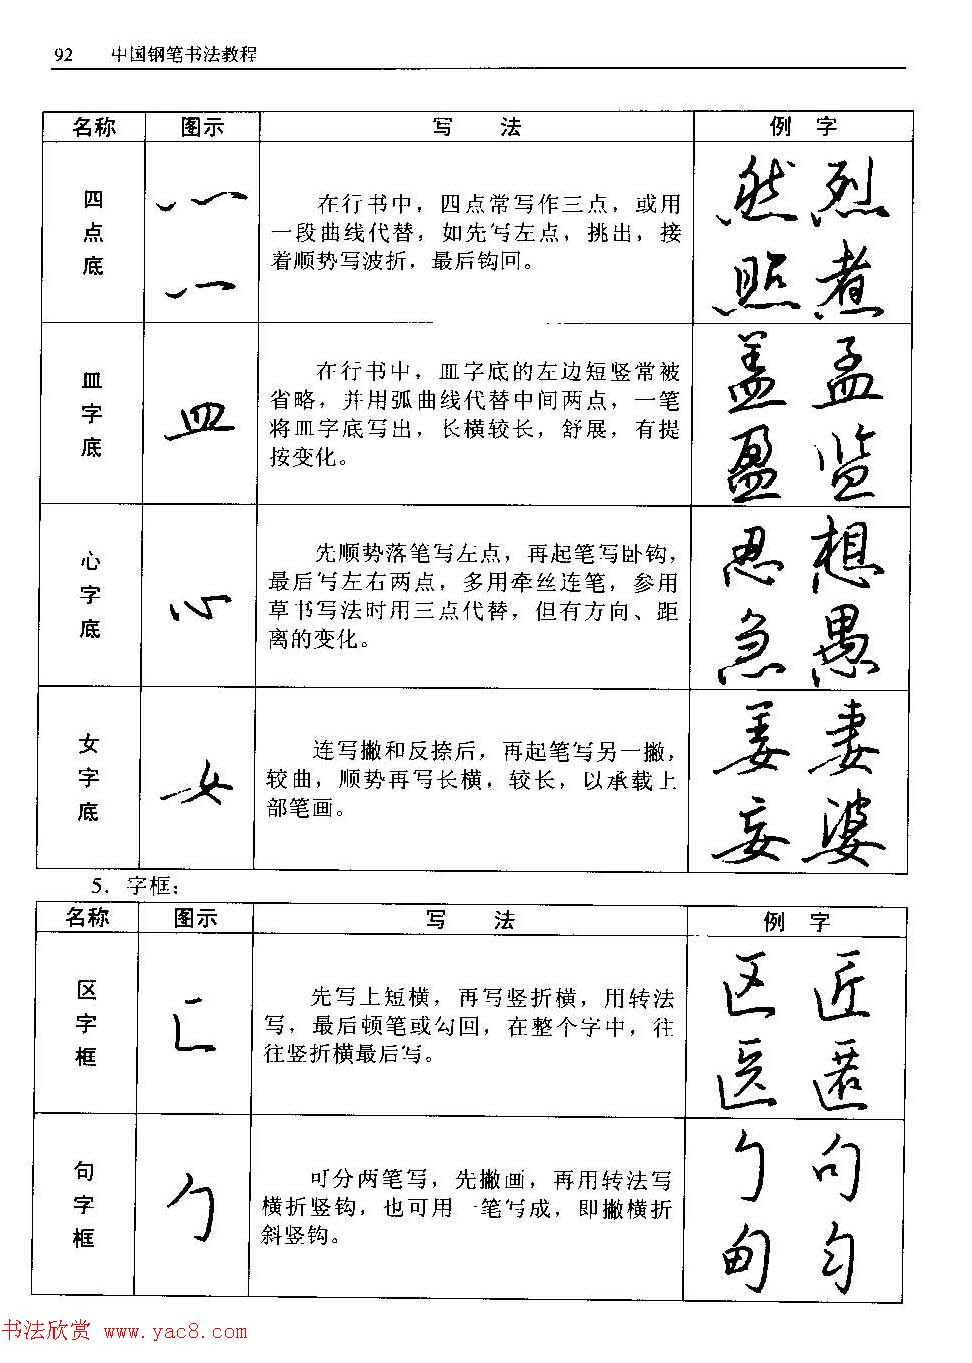 92 中国钢笔书法教程
名称 图示 写 法 例 字
四点底
在行书中，四点常写作三点，或用
一段曲线代替，如先写左点，挑出，接
着顺势写波折，最后钩回。
然 烈
照 煮
皿字底
在行书中，皿字底的左边短竖常被
省略，并用弧曲线代替中间两点，一笔
将皿字底写出，长横较长，舒展，有提
按变化。
盖 孟
盈 监
心字底
先顺势落笔写左点，再起笔写卧钩，
最后写左右两点，多用牵丝连笔，参用
草书写法时用三点代替，但有方向、距
离的变化。
忍 想
急 愚
女字底
连写撇和反捺后，再起笔写另一撇，
较曲，顺势再写长横，较长，以承载上
部笔画。
姜 妻
妄 婆
5．字框：
名称 图示 写 法 例 字
区字框
先写上短横，再写竖折横，用转法
写，最后顿笔或勾回，在整个字中，往
往竖折横最后写。
区 匠
医 匿
句字框
可分两笔写，先撇画，再用转法写
横折竖钩，也可用一笔写成，即撇横折
斜竖钩。
勹 句
甸 匀
书法欣赏 www.yac8.com